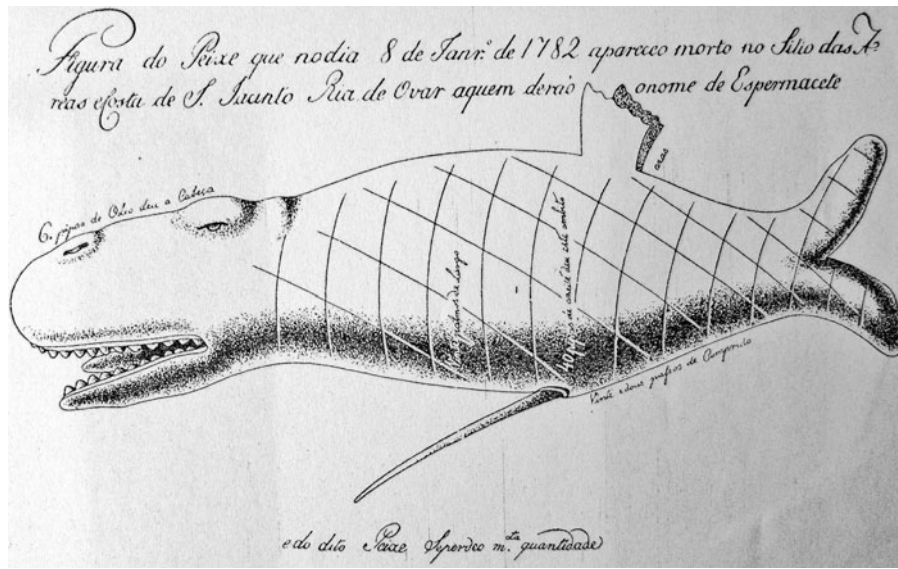 Figura do Peixe que no dia 8 de Janr.º de 1782 apareceo morto no Sitio das A-
reas e Costa de S. Jacinto Ria de Ovar aquem derão o nome de Espermacete
6. pipas de Oleo deu a Cabeça
de Largo
de azeite deu este ambito
Vinte e dous passos de Comprido
e do dito Peixe Seperdeo m.ta quantidade